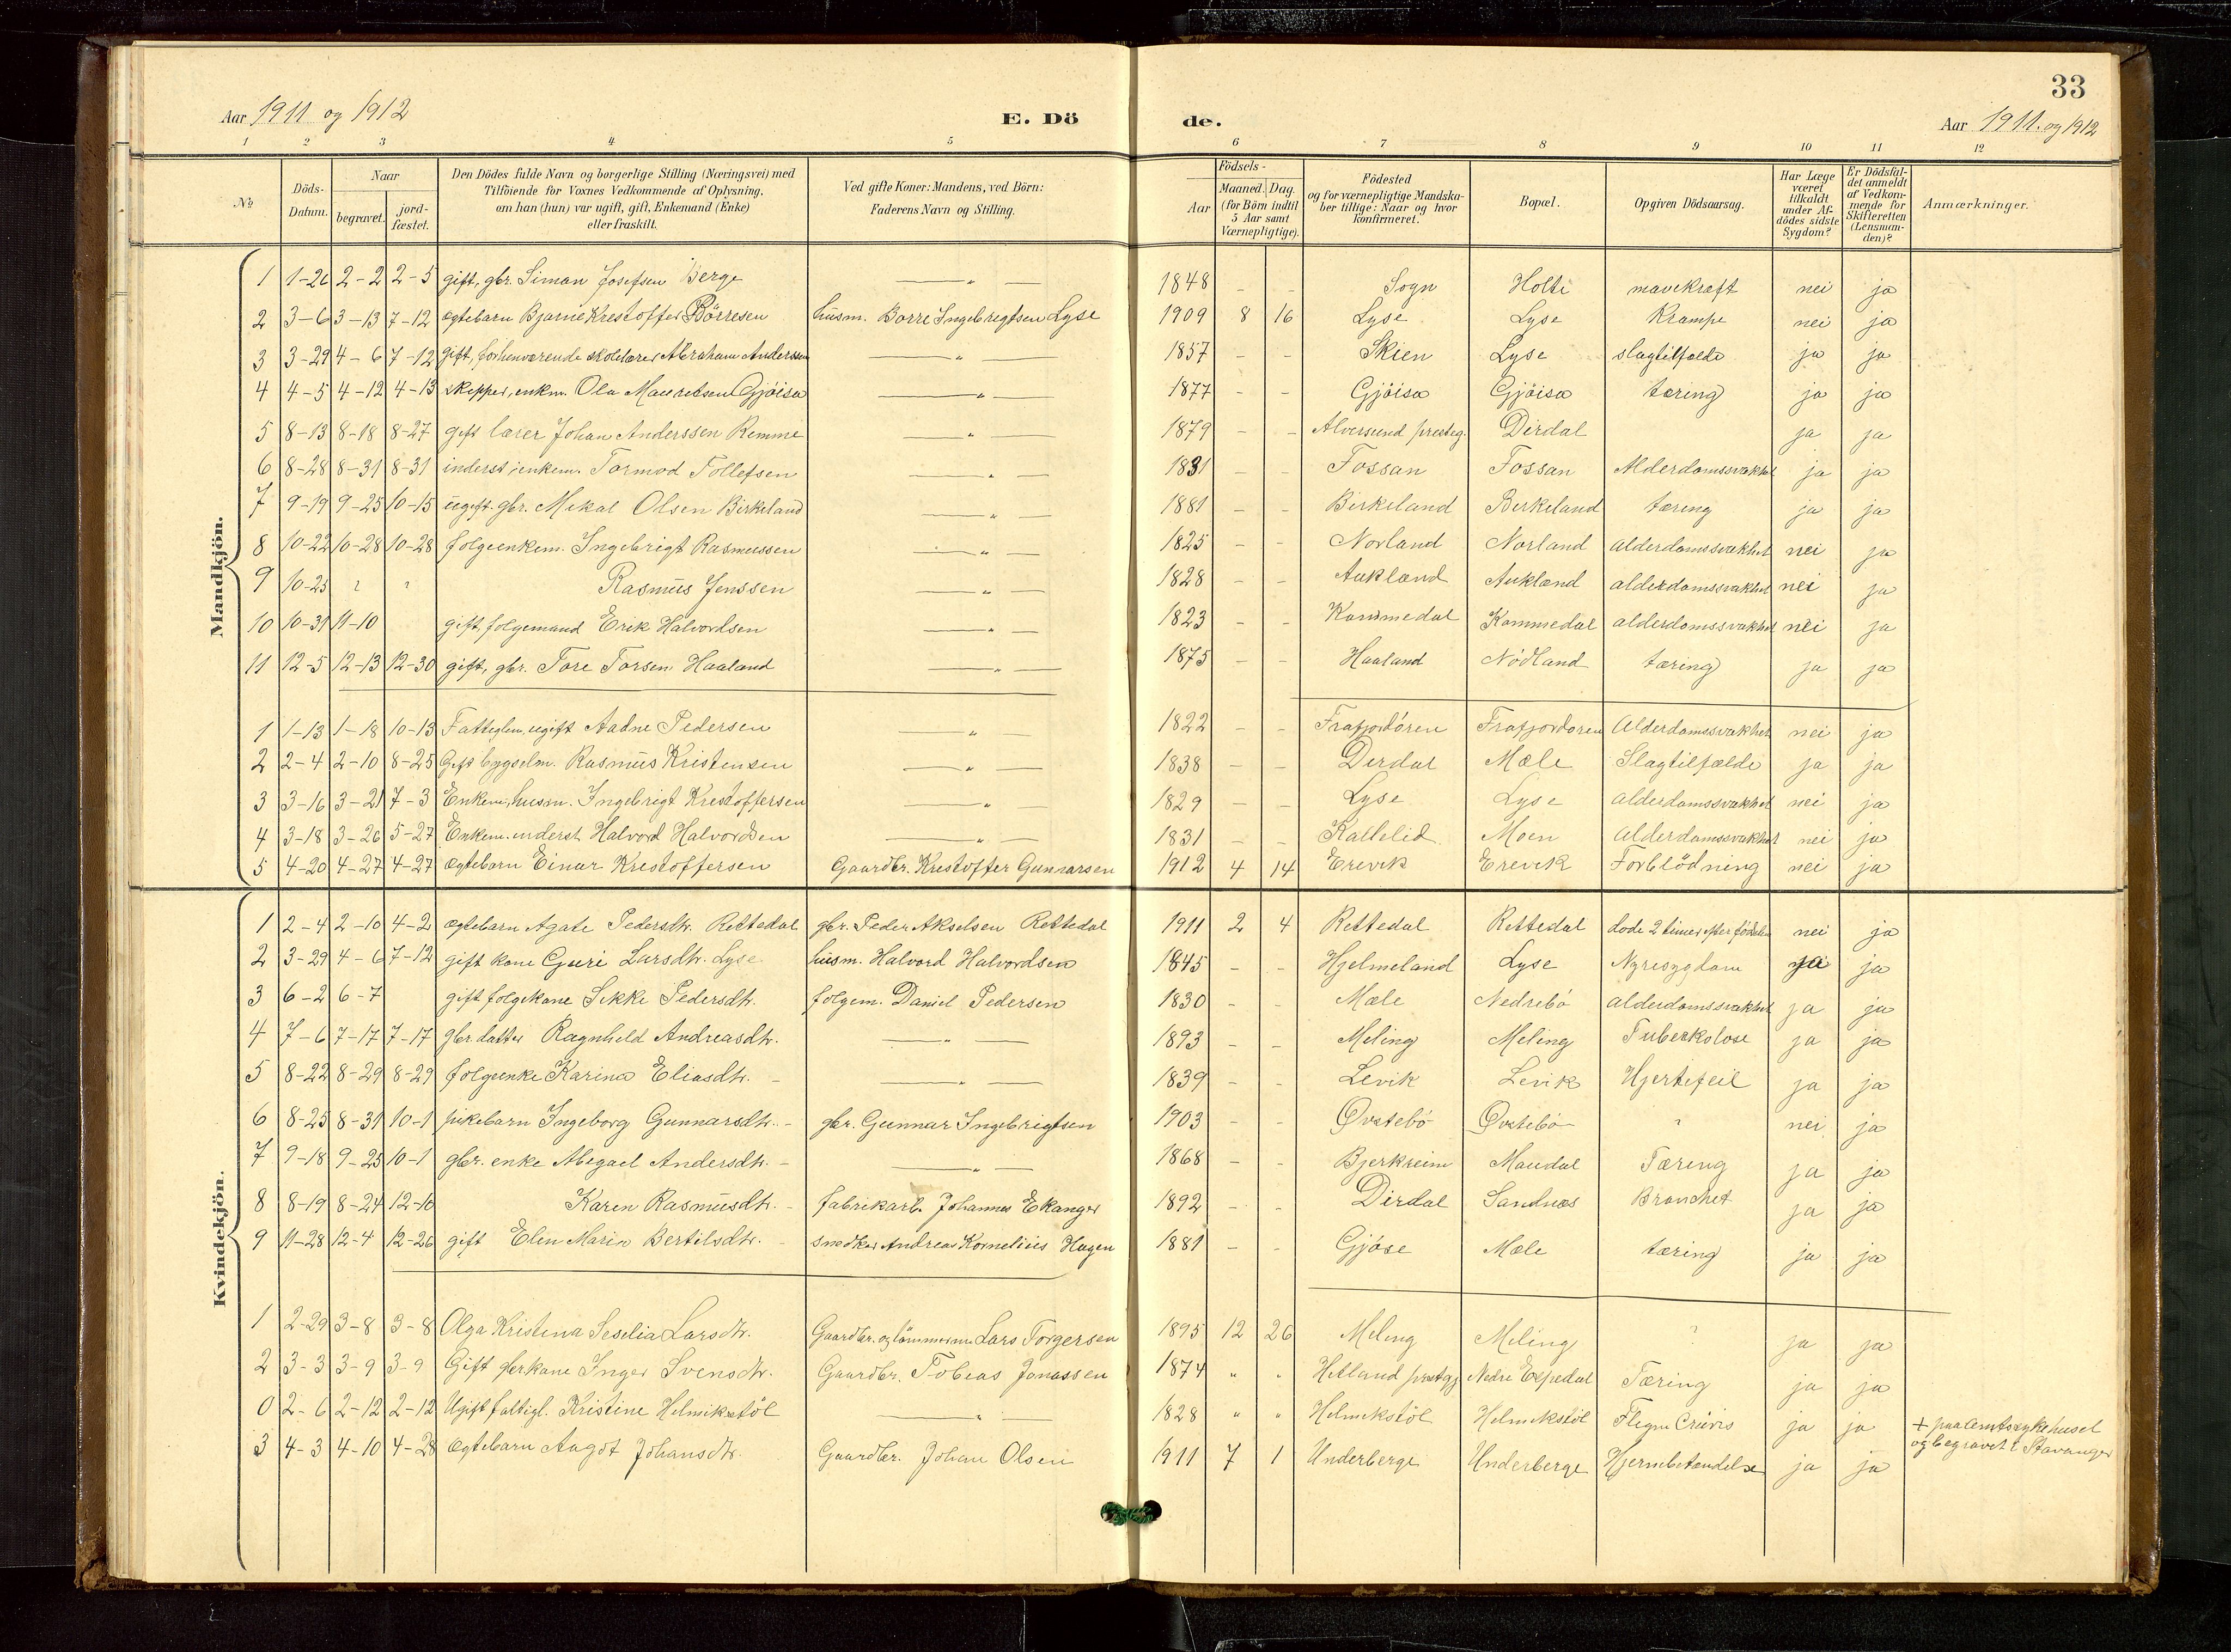 33
Aar 1911 og 1912 E. Dö de. Aar 1911. og 1912
1 2 3 4 5 6 7 8 9 10 11 12
№ Döds-Datum. Naar begravet. jord-fæstet. Den Dödes fulde Navn og borgerlige Stilling (Næringsvei) med Tilföiende for Voxnes Vedkommende af Oplysning, om han (hun) var ugift, gift, Enkemand (Enke) eller fraskilt. Ved gifte Koner: Mandens, ved Börn: Faderens Navn og Stilling. Födsels- Aar Maaned. Dag. (for Börn indtil 5 Aar samt Værnepligtige). Födested og for værnepligtige Mandskaber tillige: Naar og hvor konfirmeret. Bopæl. Opgiven Dödsaarsag. Har Læge været tilkaldt under Afdödes sidste Sygdom? Er Dödsfaldet anmeldt af Vedkommende for Skifteretten (Lensmanden)? Anmærkninger.
Mandkjön.
1 1-26 2-2 2-5 gift, gbr. Simon Josefsen Berge —„— 1848 - - Sogn Holte mavekræft nei ja
2 3-6 3-13 7-12 ægtebarn Bjarne Krestoffer Börresen husm. Borre Ingebregtsen Lyse 1909 8 16 Lyse Lyse Krampe nei ja
3 3-29 4-6 7-12 gift, forhenværende skolelærer Abraham Anderssen —„— 1857 - - Skien Lyse slagtilfælde ja ja
4 4-5 4-12 4-13 skipper, enkm. Ola Mauretsen Gjöisa —„— 1877 - - Gjöisa Gjöisa tæring ja ja
5 8-13 8-18 8-27 gift lærer Johan Anderssen Remme —„— 1879 - - Alversund presteg. Dirdal ja ja
6 8-28 8-31 8-31 inderst, enkem. Tormod Tollefsen —„— 1831 - - Fossan Fossan Alderdomssvakhet ja ja
7 9-19 9-25 10-15 ugift. gbr. Mikal Olsen Birkeland —„— 1881 - - Birkeland Birkeland tæring ja ja
8 10-22 10-28 10-28 folgeenkem. Ingebrigt Rasmussen —„— 1825 - - Norland Norland alderdomssvakhet nei ja
9 10-25 ? ? Rasmus Jenssen —„— 1828 - - Aukland Aukland alderdomssvakhet nei ja
10 10-31 11-10 gift, folgemand Erik Halvordsen —„— 1823 - - Kommedal Kommedal alderdomssvakhet nei ja
11 12-5 12-13 12-30 gift, gbr. Tore Torsen Haaland —„— 1875 - - Haaland Nödland tæring ja ja
1 1-13 1-18 10-13 Fattiglem, ugift Aadne Pedersen —„— 1822 - - Frafjordören Frafjordoren Alderdomssvakhet nei ja
2 2-4 2-10 8-25 Gift bygselm. Rasmus Kristensen —„— 1838 - - Dirdal Mæle Slagtilfælde ja ja
3 3-16 3-21 7-3 Enkem, husm. Ingebrigt Krestoffersen —„— 1829 - - Lyse Lyse alderdomssvakhet nei ja
4 3-18 3-26 5-27 Enkem. inderst Halvord Halvordsen —„— 1831 - - Kallelid Moen alderdomssvakhet nei ja
5 4-20 4-27 4-27 ægtebarn Einar Krestoffersen Gaardbr. Krestoffer Gunnarsen 1912 4 14 Erevik Erevik Forblödning nei ja
Kvindekjön.
1 2-4 2-10 4-2 ægtebarn Agate Pedersdtr. Rettedal gbr. Peder Akselsen Rettedal 1911 2 4 Rettedal Rettedal döde 2 timer efter födselen nei ja
2 3-29 4-6 7-12 gift kone Guri Larsdtr. Lyse husm. Halvord Halvordsen 1845 - - Hjelmeland Lyse Nyresygdom ja ja
3 6-2 6-7 gift folgekone Sikke Pedersdtr. folgem. Daniel Pedersen 1830 - - Mæle Nedrebö alderdomssvakhet ja ja
4 7-6 7-17 7-17 gbr. datter Ragnheld Andreasdtr. —„— 1893 - - Meling Meling Tuberkolose ja ja
5 8-22 8-29 8-29 folgeenke Karina Eliasdtr. —„— 1839 - - Levik Levik Hjertefeil ja ja
6 8-25 8-31 10-1 pikebarn Ingeborg Gunnarsdtr. gbr. Gunnar Ingebrigtsen 1903 - - Øvstebö Øvstebö ? nei ja
7 9-18 9-25 10-1 gbr. enke Abegael Andersdtr. —„— 1868 - - Bjerkreim Maudal Tæring ja ja
8 8-19 8-24 12-10 Karen Rasmusdtr. fabrikarb. Johannes Ekanger 1892 - - Dirdal Sandnæs Bronchet ja ja
9 11-28 12-4 12-26 gift Elen Maria Bertilsdtr. snedker Andreas Kornelius Hagen 1881 - - Gjöse Mæle tæring ja ja
1 2-29 3-8 3-8 Olga Kristina Seselia Larsdtr. Gaardbr. og tömmerm Lars Torgersen 1895 12 26 Meling Meling ? ja ja
2 3-3 3-9 3-9 Gift gbrkone Inger Svensdtr. Gaardbr. Tobias Jonassen 1874 „ „ Hetland prestgj Nedre Espedal Tæring ja ja
0 2-6 2-12 2-12 Ugift fattigl. Kristine Helmikstöl —„— 1828 „ „ Helmekstöl Helmekstöl Flegm Cruris ja ja + paa amtssykehuset
og begravet i Stavanger
3 4-3 4-10 4-28 ægtebarn Aagot Johansdtr. Gaardbr. Johan Olsen 1911 7 1 Underberge Underberge Hjernebetændelse ja ja